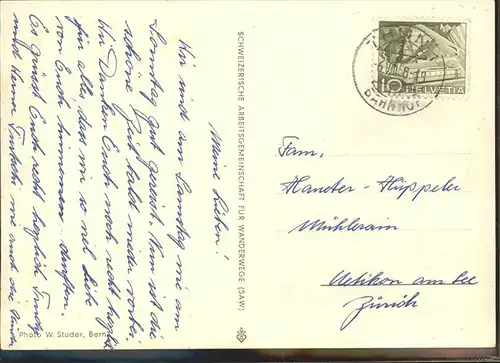 Meine Lieben!
Wir sind am Samstag wie am
Sonntag gut gereist. Nun ist die
schöne Zeit bald wieder vorbei.
Wir Danken Euch noch recht herzlich
für alles, dass wir so viel Liebe
von Euch hinnehmen durften.
Es grüsst Euch recht herzlich
und wie auch die
SCHWEIZERISCHE ARBEITSGEMEINSCHAFT FÜR WANDERWEGE (SAW)
Photo W. Studer, Bern
10 HELVETIA
BAHNHOF
Fam.
Mühlerain
Uetikon am See
Zürich